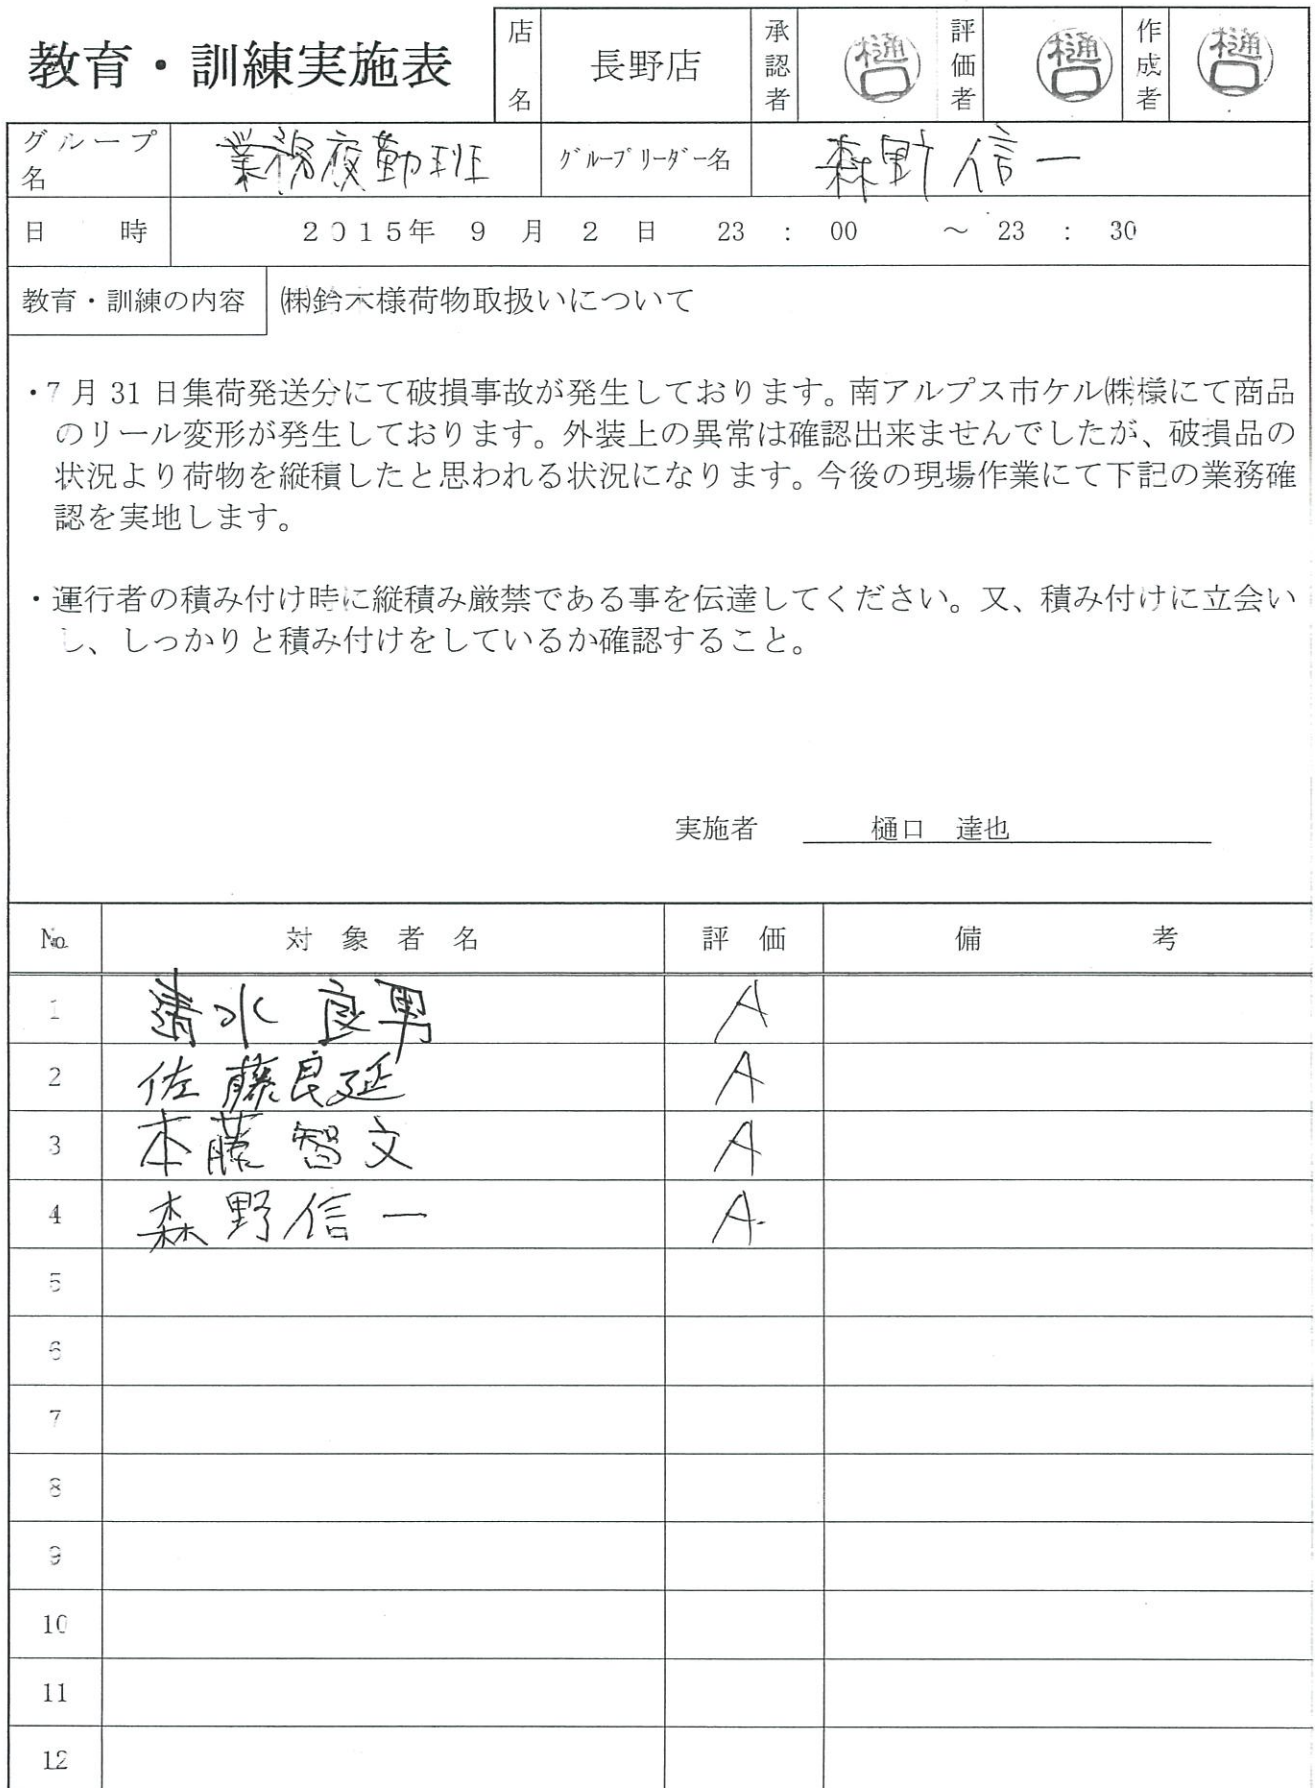 教育・訓練実施表
店名 長野店 承認者 樋口 評価者 樋口 作成者 樋口
グループ名 業務夜勤班 グループリーダー名 森野信一
日 時 2015年 9 月 2 日 23 : 00 ～ 23 : 30
教育・訓練の内容 ㈱鈴木様荷物取扱いについて
・7月31日集荷発送分にて破損事故が発生しております。南アルプス市ケル㈱様にて商品
のリール変形が発生しております。外装上の異常は確認出来ませんでしたが、破損品の
状況より荷物を縦積したと思われる状況になります。今後の現場作業にて下記の業務確
認を実地します。
・運行者の積み付け時に縦積み厳禁である事を伝達してください。又、積み付けに立会い
し、しっかりと積み付けをしているか確認すること。
実施者 樋口 達也
№ 対象者名 評価 備考
1 清水 良男 A
2 佐藤良延 A
3 本藤 智文 A
4 森野信一 A.
5
6
7
8
9
10
11
12